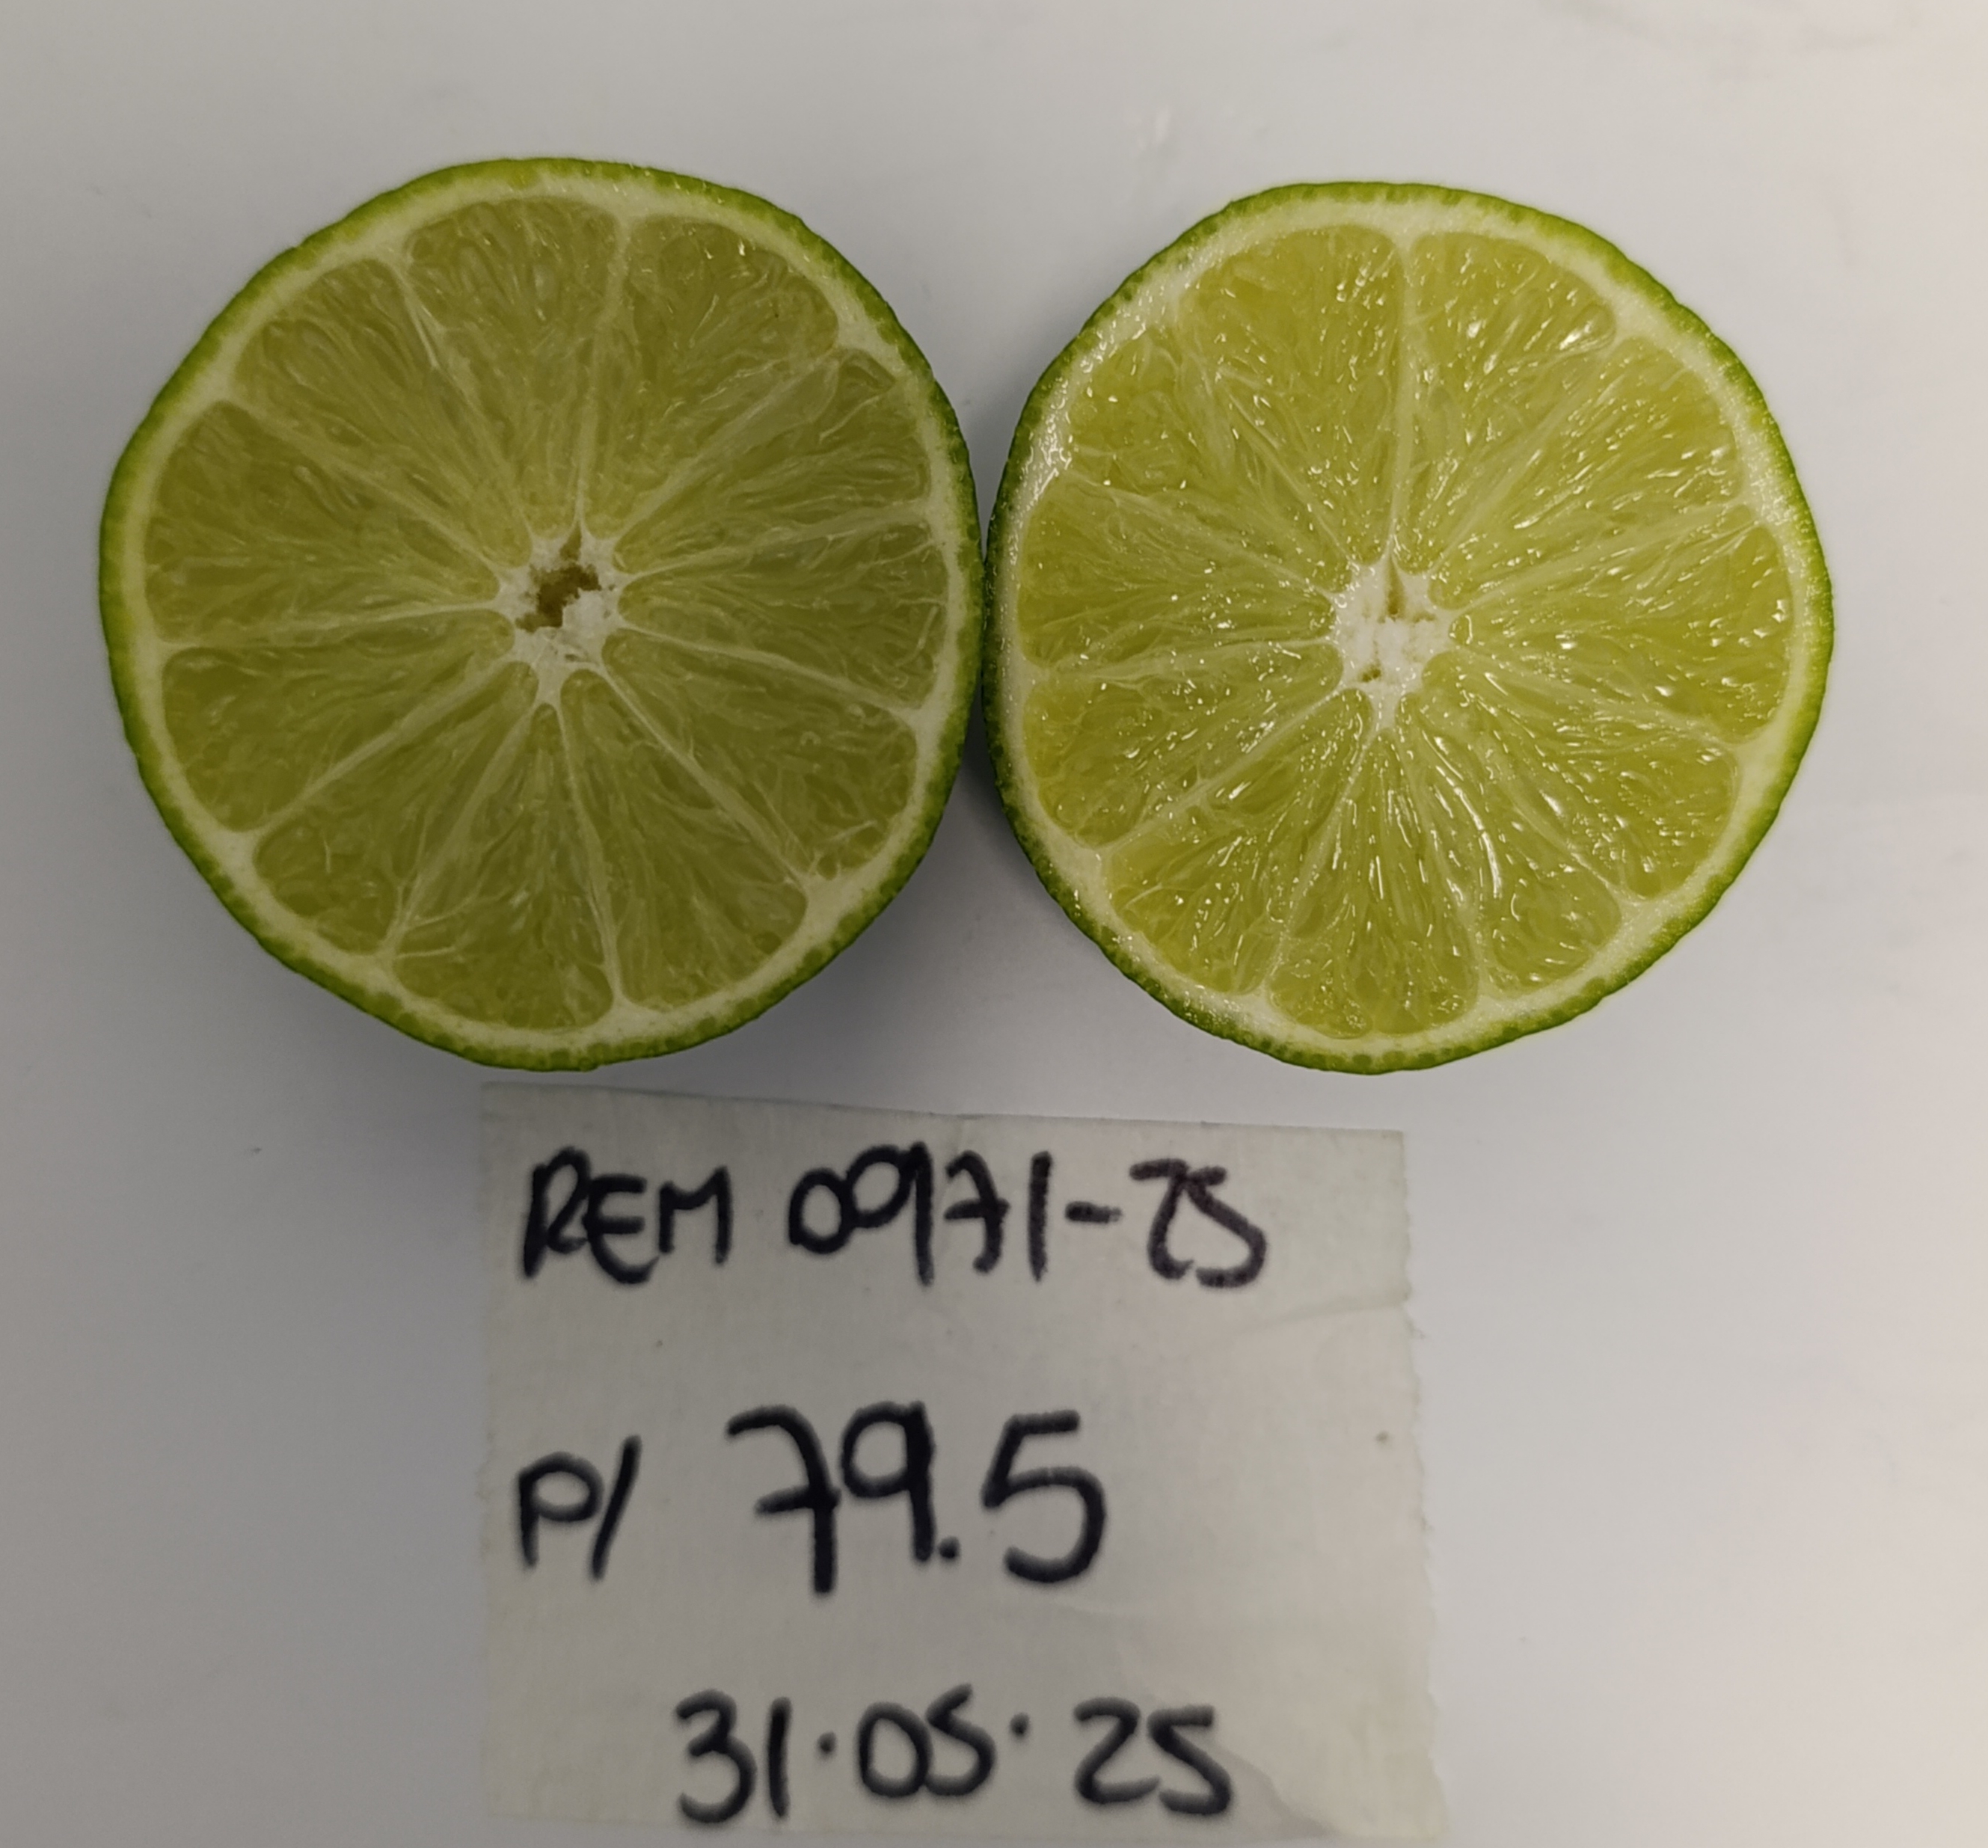 REM 00971-25
P/ 79.5
31.05.25